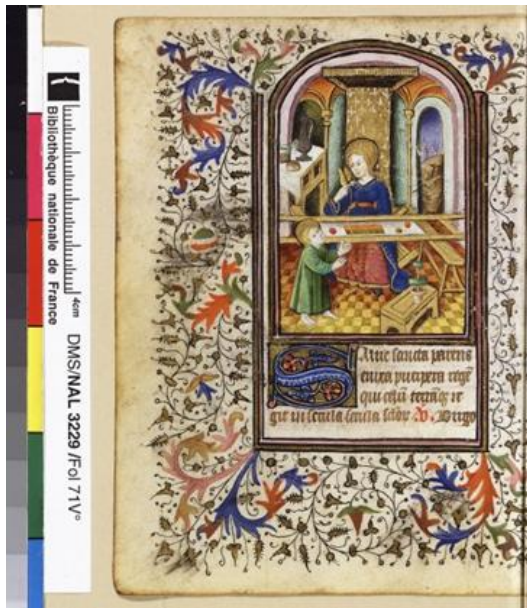 Bibliothèque nationale de France
4cm
DMS/NAL 3229 /Fol 71V°
Salue sancta parens
enixa puerpera regē
qui celū terrāq; re
git in secula seculoꝝ V. Virgo